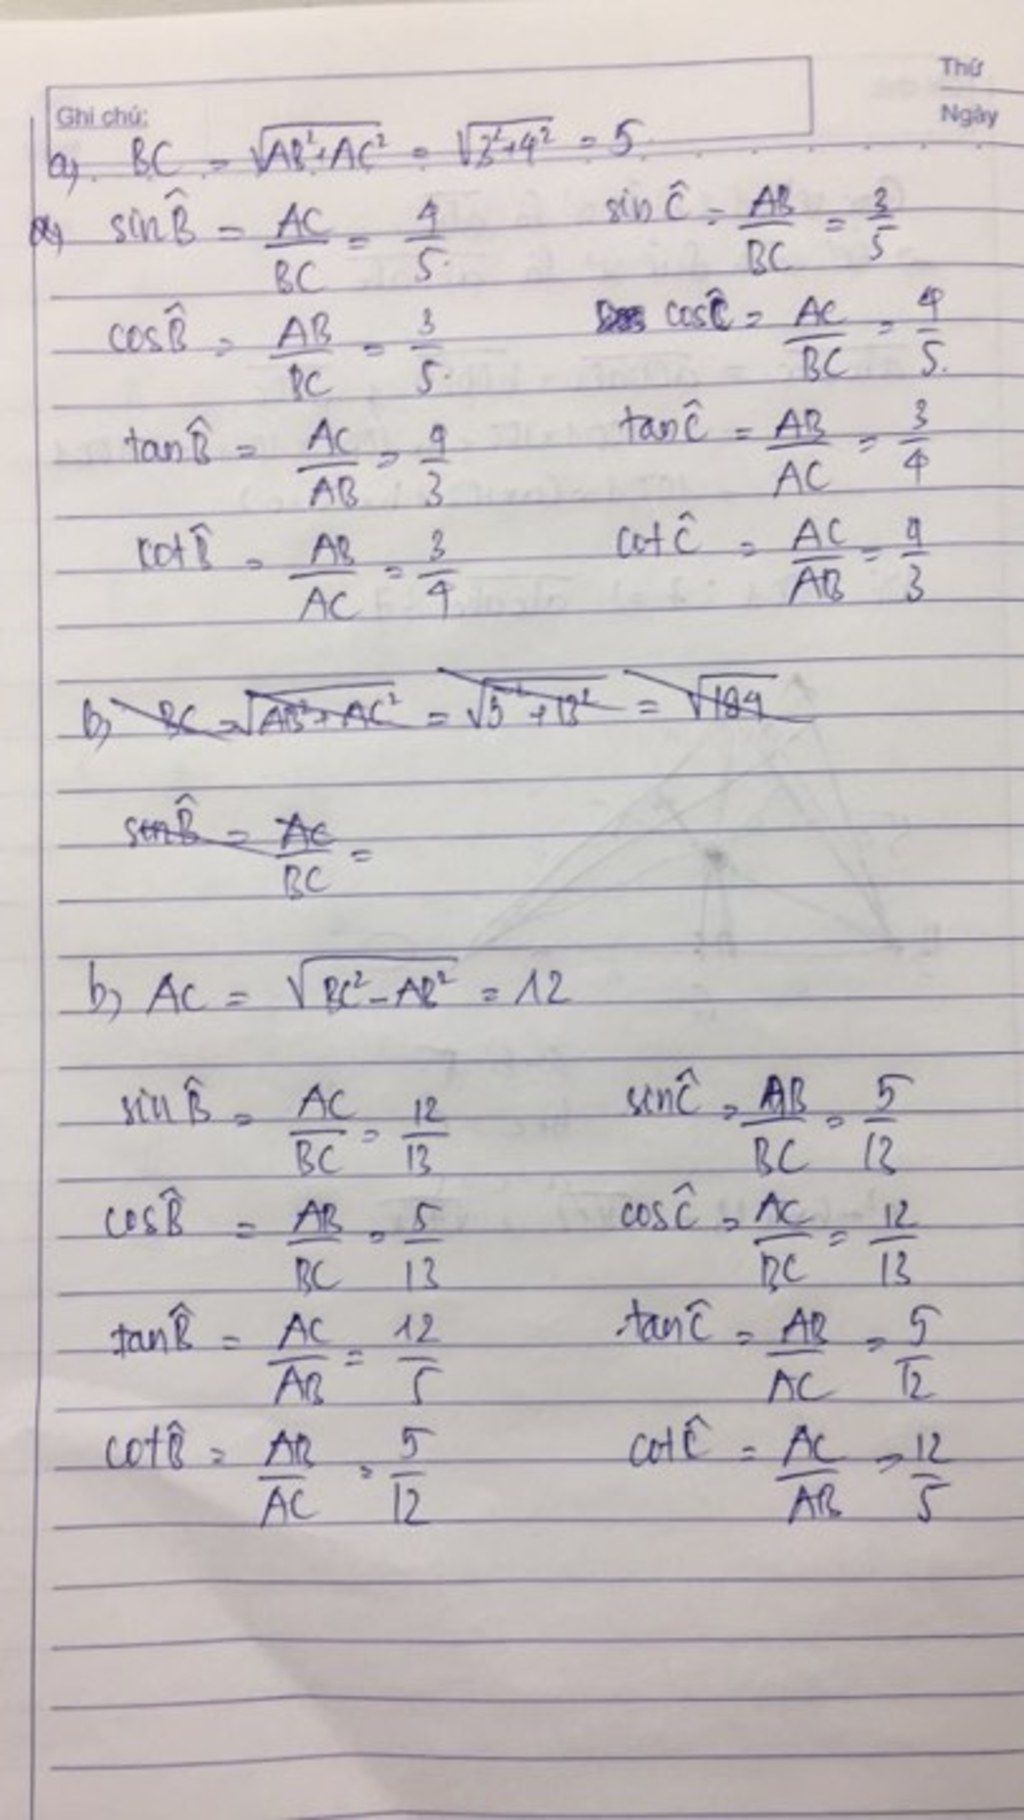 Thứ
Ghi chú:
Ngày
a, BC = √AB²+AC² = √3²+4² = 5
a, sin B̂ = AC/BC = 4/5. sin Ĉ = AB/BC = 3/5
cos B̂ = AB/BC = 3/5. cos Ĉ = AC/BC = 4/5.
tan B̂ = AC/AB = 4/3 tan Ĉ = AB/AC = 3/4
cot B̂ = AB/AC = 3/4 cot Ĉ = AC/AB = 4/3
b, BC = √AB²+AC² = √5²+13² = √184
sin B̂ = AC/BC =
b, AC = √BC²-AB² = 12
sin B̂ = AC/BC = 12/13 sin Ĉ = AB/BC = 5/13
cos B̂ = AB/BC = 5/13 cos Ĉ = AC/BC = 12/13
tan B̂ = AC/AB = 12/5 tan Ĉ = AB/AC = 5/12
cot B̂ = AB/AC = 5/12 cot Ĉ = AC/AB = 12/5